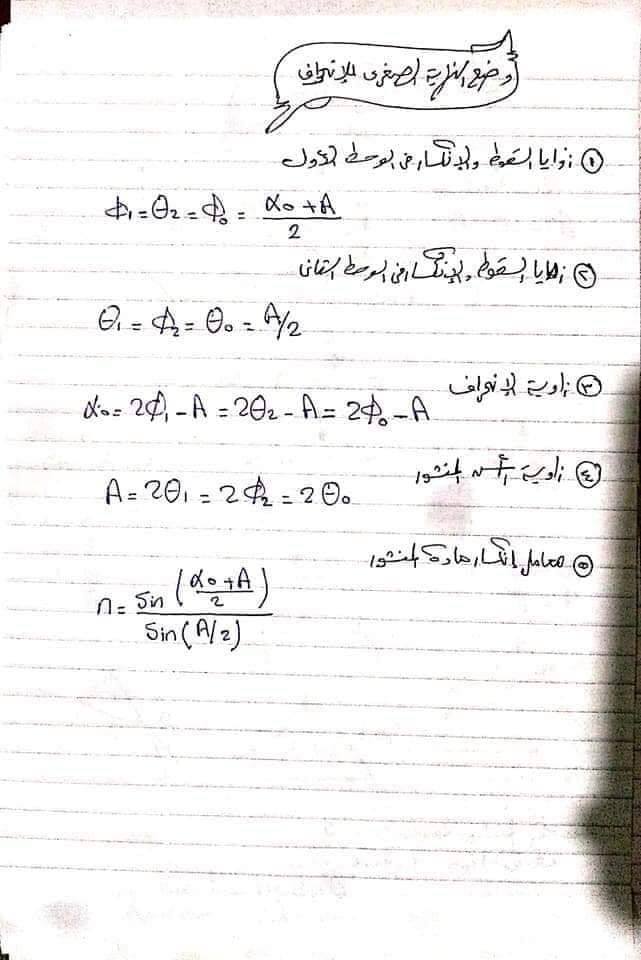 وضع النهاية الصغرى للإنحراف
① زوايا السقوط والإنكسار فى الوسط الأول
ϕ₁ = θ₂ = ϕ₀ = (α₀ + A) / 2
② زوايا السقوط والإنكسار فى الوسط الثانى
θ₁ = ϕ₂ = θ₀ = A/2
③ زاوية الإنحراف
α₀ = 2ϕ₁ - A = 2θ₂ - A = 2ϕ₀ - A
④ زاوية رأس المنشور
A = 2θ₁ = 2ϕ₂ = 2θ₀
⑤ معامل إنكسار مادة المنشور
n = sin((α₀ + A) / 2) / sin(A/2)